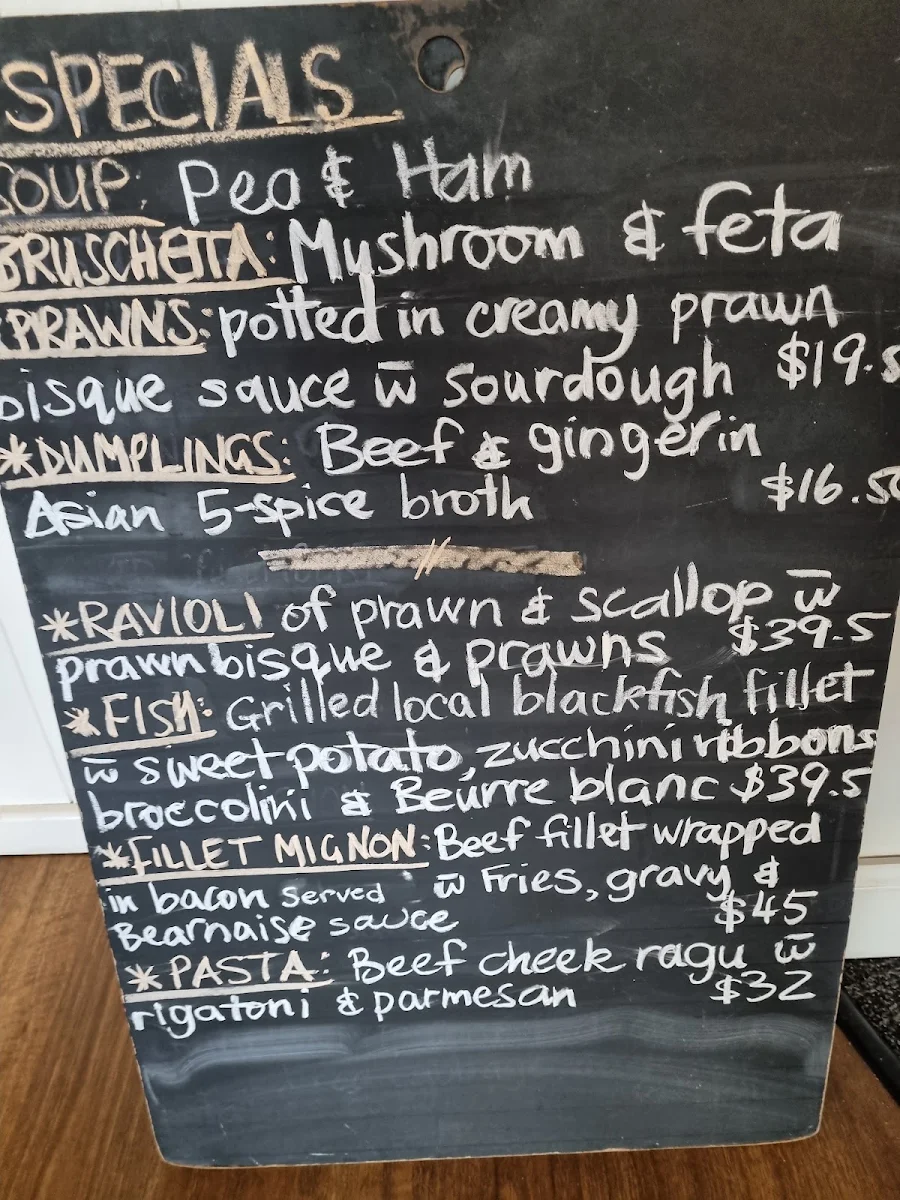 SPECIALS
SOUP: Pea & Ham
BRUSCHETTA: Mushroom & feta
*PRAWNS: potted in creamy prawn
bisque sauce w̅ sourdough $19.5
*DUMPLINGS: Beef & ginger in
Asian 5-spice broth $16.50
*RAVIOLI of prawn & scallop w̅
prawn bisque & prawns $39.5
*FISH: Grilled local blackfish fillet
w̅ sweet potato, zucchini ribbons
broccolini & Beurre blanc $39.5
*FILLET MIGNON: Beef fillet wrapped
in bacon served w̅ Fries, gravy &
Bearnaise sauce $45
*PASTA: Beef cheek ragu w̅
rigatoni & parmesan $32